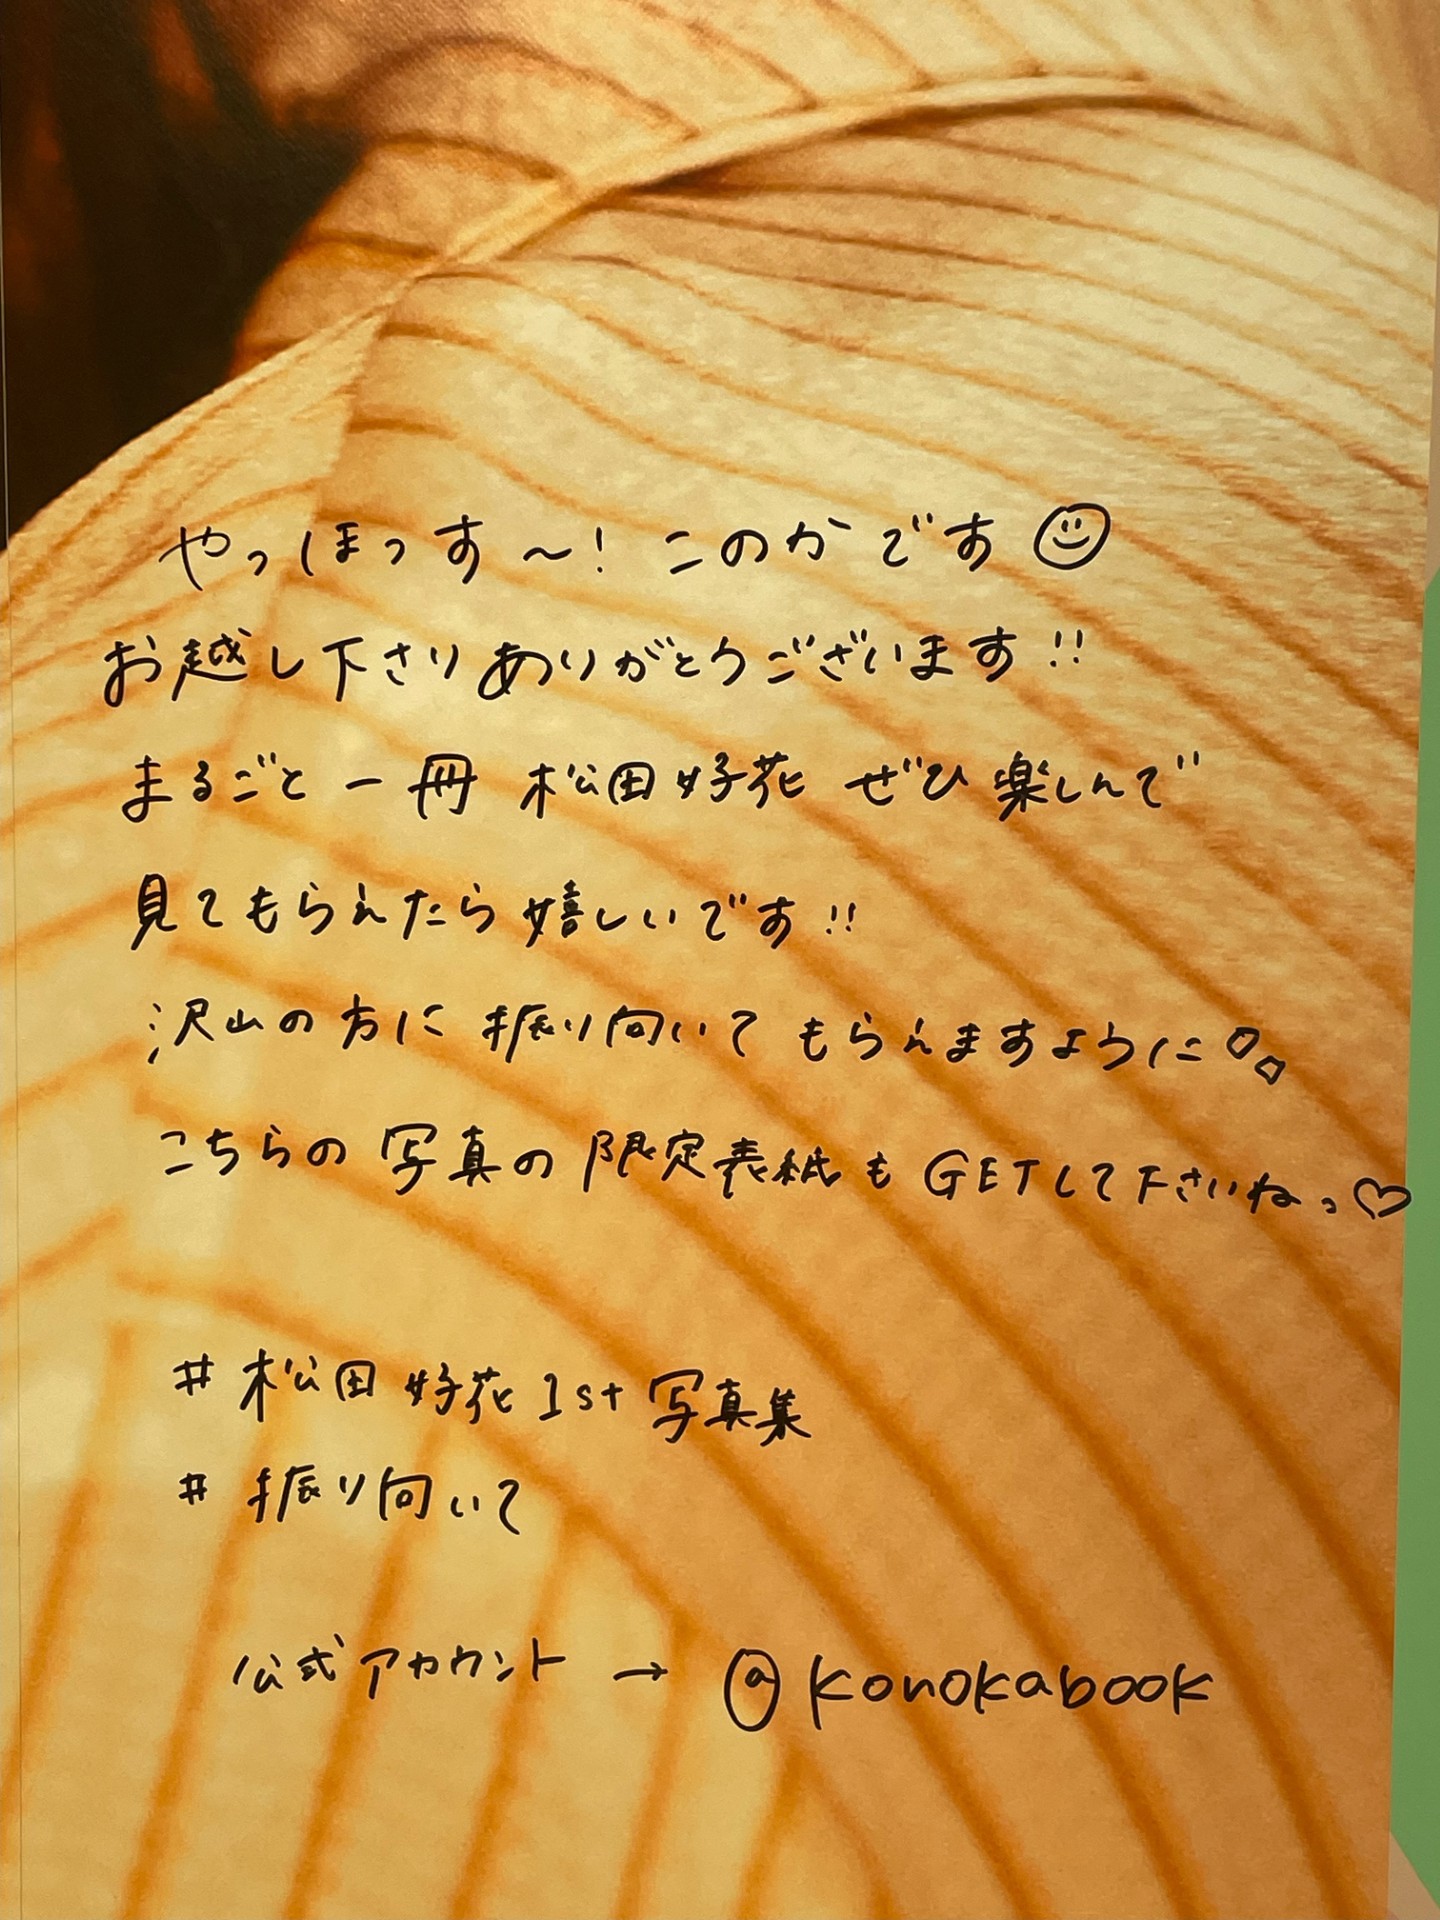 やっほっす〜！このかです☺
お越し下さりありがとうございます!!
まるごと一冊 松田好花 ぜひ楽しんで
見てもらえたら嬉しいです!!
沢山の方に 振り向いて もらえますように
こちらの写真の限定表紙も GETして下さいねっ♡
#松田好花1st写真集
#振り向いて
公式アカウント → @konokabook